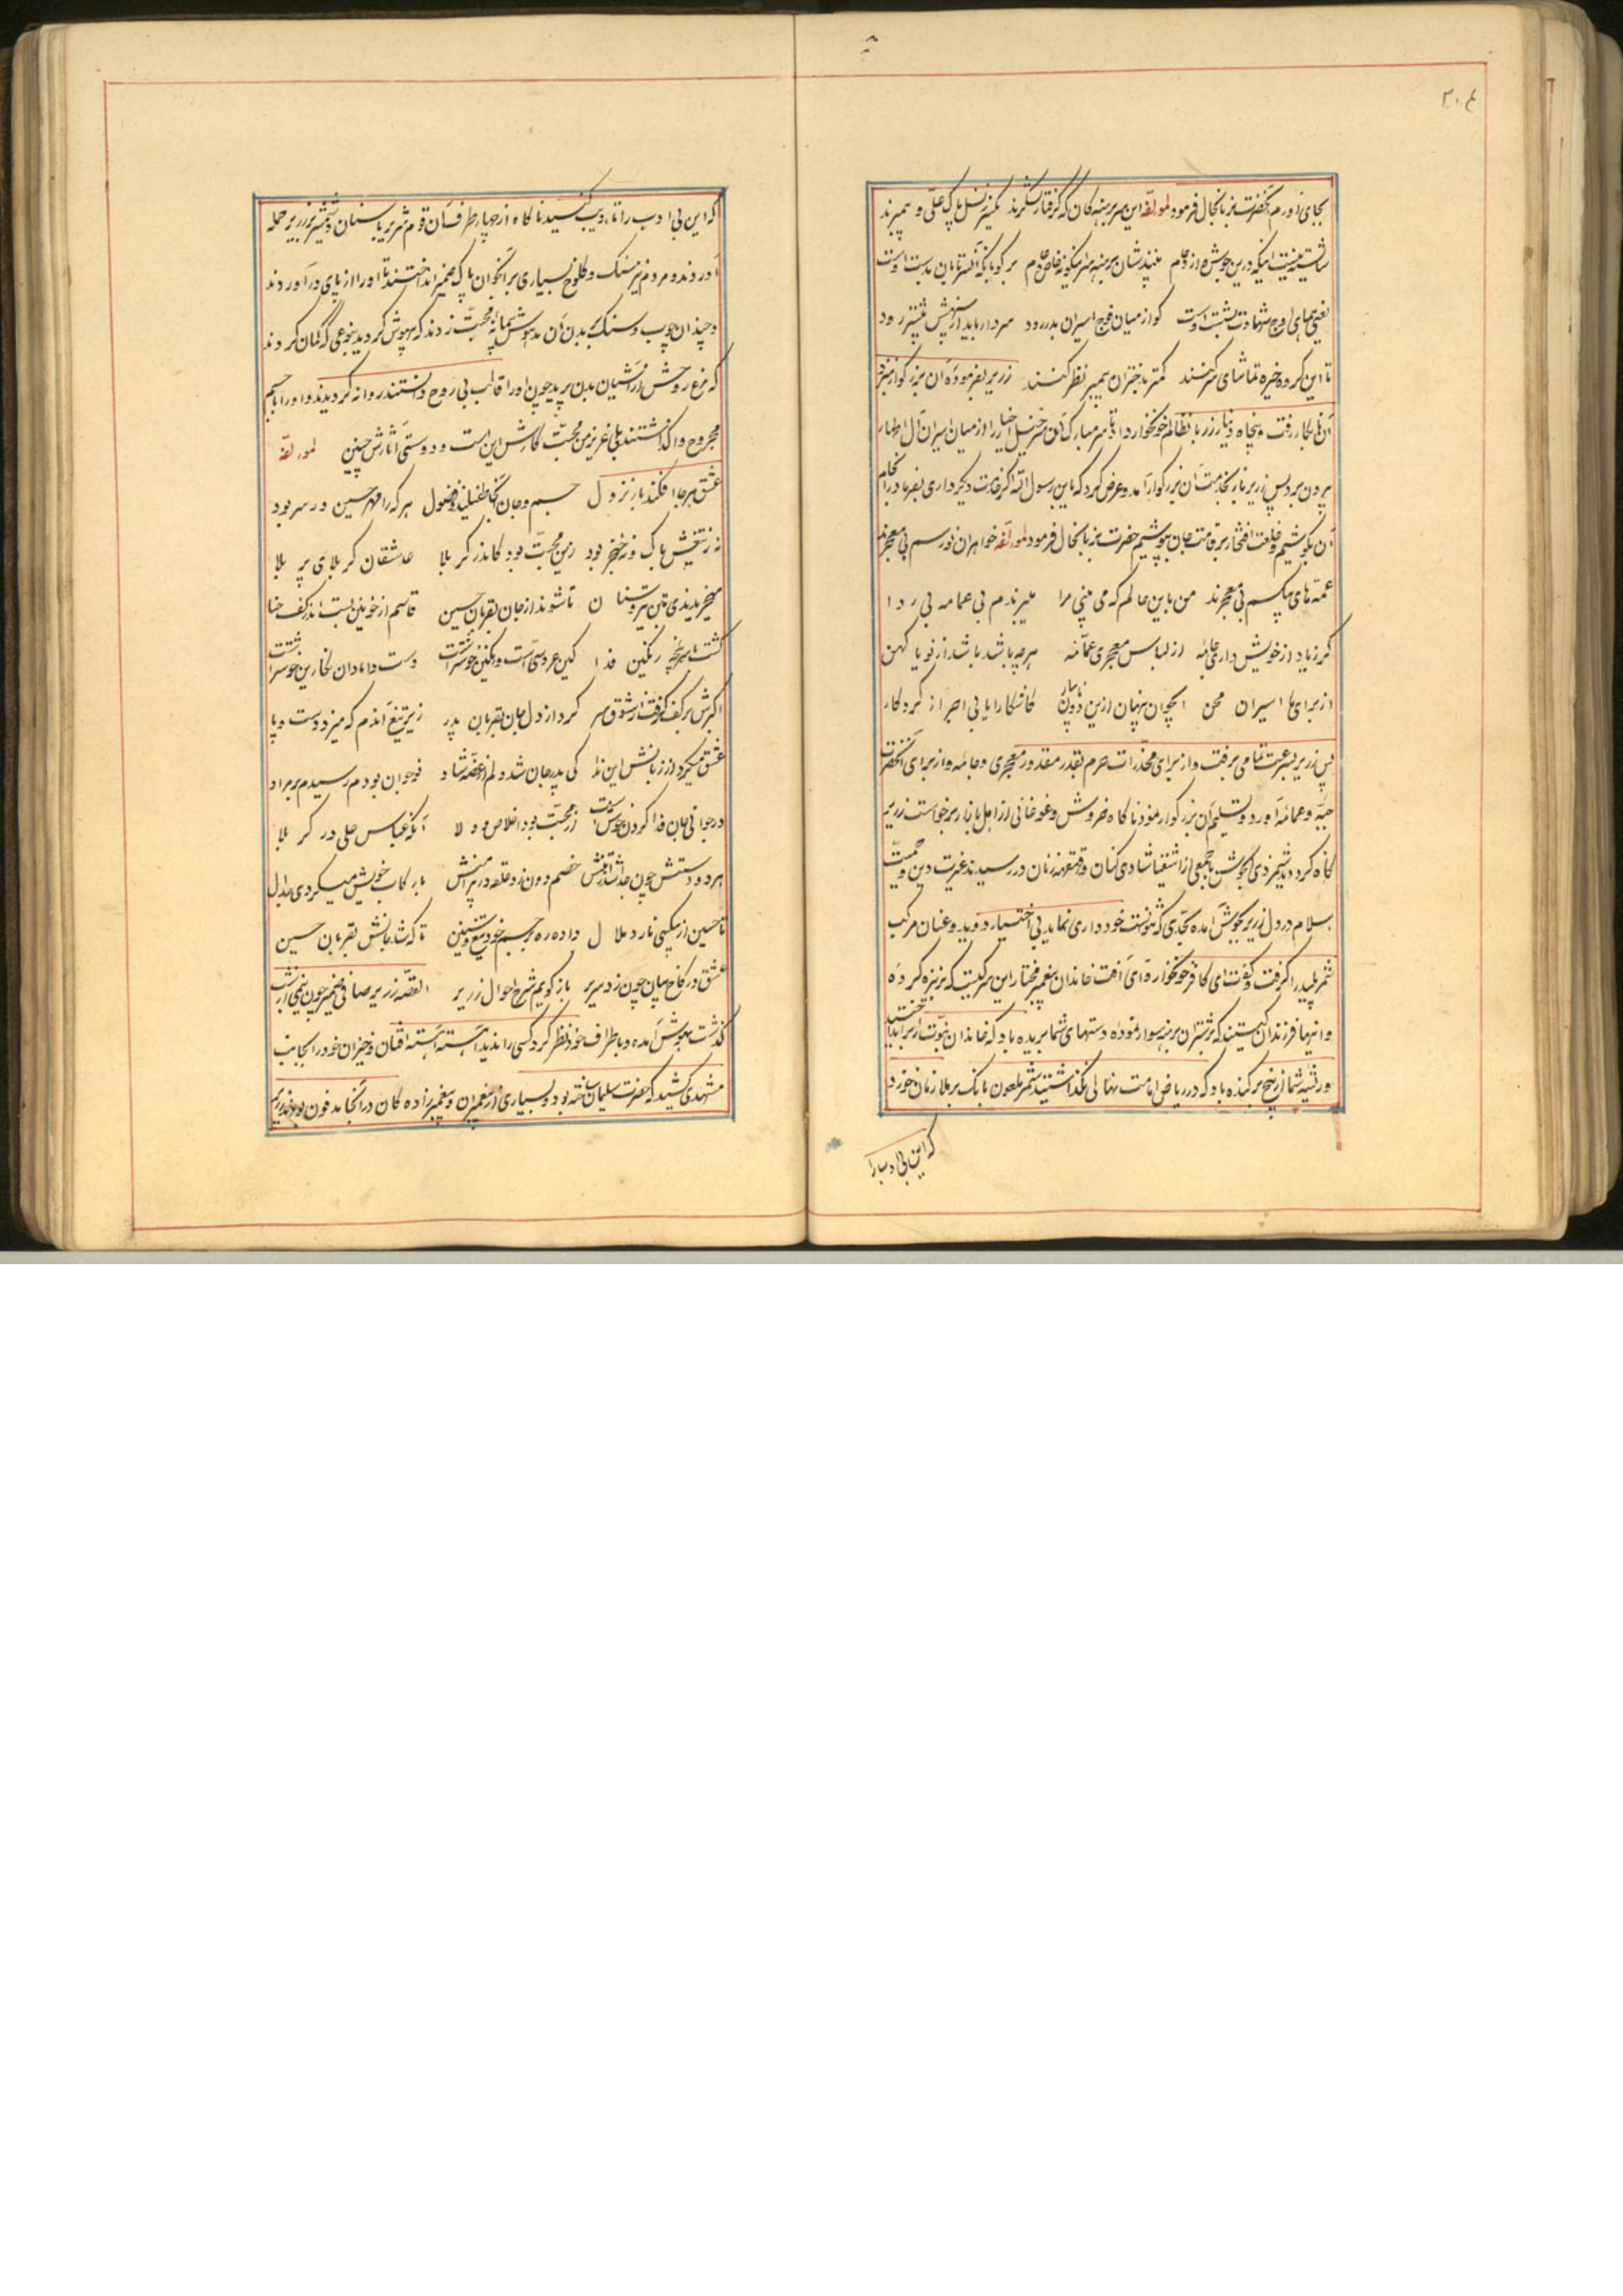 ۳۰۴
بجای آورم آنحضرت بزبانحال فرمود لمؤلفه این سر برهنه کان که گرفتار لشکرند یکسر ز نسل پاک علی و پیمبرند
شایسته نیست اینکه درین جوش ازدحام بینندشان برهنه سر اینگونه خاص و عام بر گو بآنکه
یعنی همای اوج شهادت کو از میان فوج اسیران بدر رود سردار باید از پیشتر رود
تا این گروه خیره تماشای سر کنند کمتر بدختران پیمبر نظر کنند زریر بفرموده آن بزرگوار
رفت و پنجاه دینار زر بآن ظالم خونخوار داد تا سر مبارک آن را از میان اسیران آل اطهار
بیرون برد پس زریر باز بخدمت آن بزرگوار آمد و عرض کرد که یابن رسول الله اگر خدمت دیگر داری بفرما در انجام
آن بکوشیم و خلعت افتخار بر قامت جان بپوشیم حضرت بزبانحال فرمود لمؤلفه خواهران نورسم بی معجرند
عمه های بیکسم بی معجرند من باین حالم که می بینی مرا میبرندم بی عمامه بی ردا
گر زیاد از خویش داری جامه از لباس معجری عمامه هر چه باشد باشد از نو یا کهن
از برای ما اسیران محن پنهان ازین آشکارا یابی اجر از کردگار
پس زریر بسرعت تمامی برفت و از برای مخدرات حرم بقدر مقدور معجری و جامه و از برای آنحضرت
جبه و عمامه آورد و تسلیم آن بزرگوار نمود ناگاه خروش و غوغائی از اهل بازار برخواست زریر
نگاه کرد دید شمر ذی الجوشن با جمعی از اشقیا شادی کنان و قهقهه زنان در رسیدند غیرت دین و حمیت
اسلام در دل زریر بجوش آمده بحدی که نتوانست خود داری نماید بی اختیار دوید و عنان مرکب
شمر پلید را گرفت و گفت ای کافر خونخوار و ای آفت خاندان پیغمبر مختار این سر کیست که بر نیزه کرده
و اینها فرزندان کیستند که بر شتران برهنه سوار نموده دستهای شما بریده باد که خاندان نبوت را بر انداختید
و ریشه شما از بیخ بر کنده باد که در ریاض امامت نهالی نگذاشتید شمر ملعون بانک بر ملازمان خود زد
که این بی ادب را
که این بی ادب را تادیب کنید ناگاه از چهار طرف آن قوم شریر با سنان و شمشیر بر زریر حمله
آوردند و مردم نیز سنگ و کلوخ بسیاری بر آنجوان پاک ضمیر انداختند تا او را از پای در آوردند
و چندان چوب و سنگ بر بدن آن مدهوش پیمانه محبت زدند که بیهوش گردید بنوعی که گمان کردند
که مرغ روحش از آشیان بدن پرید چون او را قالب بی روح دانستند روانه گردیدند و او را با جسم
مجروح وا گذاشتند بلی عزیز من محبت کارش این است و دوستی آثارش چنین لمؤلفه
عشق هر جا افکند بار نزول جسم و جان آنجا طفیلند و فضول هر که را مهر حسین در سر بود
نه ز تیغش باک و نه ز خنجر بود زین محبت بود کاندر کربلا عاشقان کربلای پر بلا
میخریدندی بتن تیر و سنان تا شوند از جان بقربان حسین قاسم از خون بست اندر کف حنا
گشت با سر پنجه رنگین فدا کین عروسی است و رنگین خوشتر است دست دامادان نگارین خوشتر است
اکبرش بر کف گرفت از شوق سر کرد از دل جان بقربان پدر زیر تیغ آندم که میزد دست و پا
عشق میکرد از زبانش این ندا کی پدر جان شد دلم از غصه شاد نوجوان بودم رسیدم بر مراد
در جوانی جان فدا کردن خوش است از محبت بود اخلاص و ولا آنکه عباس علی در کربلا
هر دو دستش چون جدا شد از تنش خصم دون زد حلقه در پیرامنش با رکاب خویش میکردی جدال
تا حسین از بیکسی نارد ملال داده ره بر جسم خود تیغ و سنین تا که شد جانش بقربان حسین
عشق در کاخ بیان چون زد سریر باز گویم شرح احوال زریر القصه زریر صافی ضمیر چون نیمی از شب
گذشت بهوش آمده و باطراف خود نظر کرد کسی را ندید آهسته آهسته افتان و خیزان خود را بجانب
مشهدی کشید که حضرت سلیمان ساخته بود و بسیاری از پیغمبران و پیغمبرزاده گان در آنجا مدفون بودند